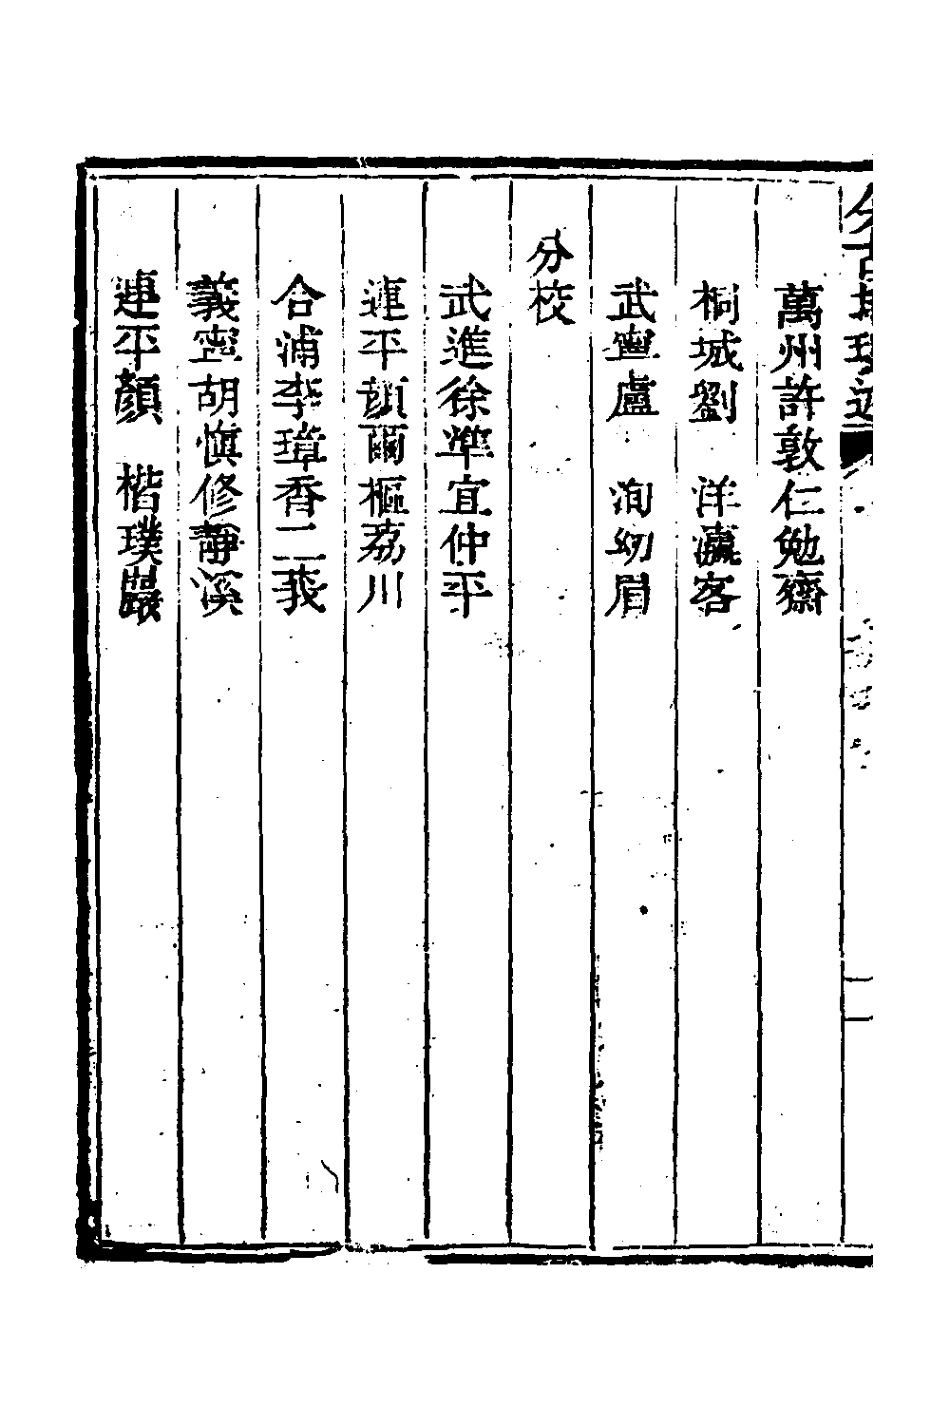 萬州許敦仁勉齋
桐城劉　洋瀛客
武寧盧　洵幼眉
分校
武進徐準宜仲平
連平顏爾樞荔川
合浦李璋香二莪
義寧胡愼修靜溪
連平顏　楷璞巖